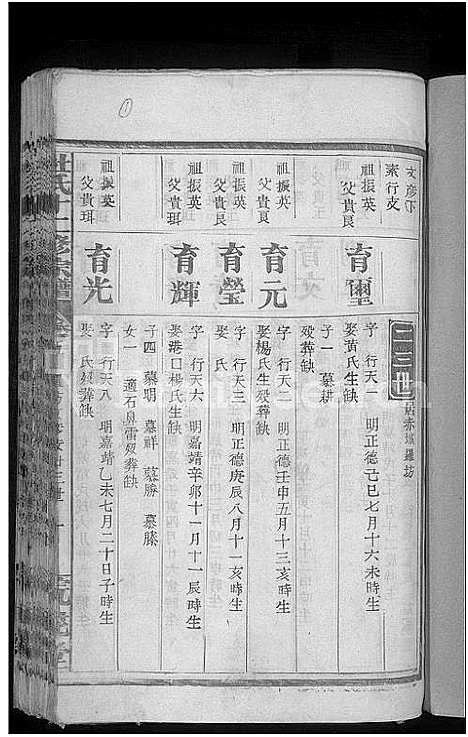 文彥下
素行支
二三世
居赤城羅坊
祖振英
父貴艮
育璽
字 行天一 明正德己巳七月十六未時生
娶黃氏生缺
歿葬缺
子一 慕耕
祖振英
父貴艮
育元
字 行天二 明正德壬申五月十三亥時生
娶楊氏生歿葬缺
祖振英
父貴良
育瑩
字 行天三 明正德庚辰八月十一亥時生
娶 氏
祖振英
父貴珥
育輝
字 行天六 明嘉靖辛卯十一月十一辰時生
娶港口楊氏生缺
子四 慕明 慕祥 慕勝 慕滕
女一 適石鼻雷歿葬缺
祖振英
父貴珥
育光
字 行天八 明嘉靖乙未七月二十日子時生
娶 氏歿葬缺
杜氏十二修宗譜